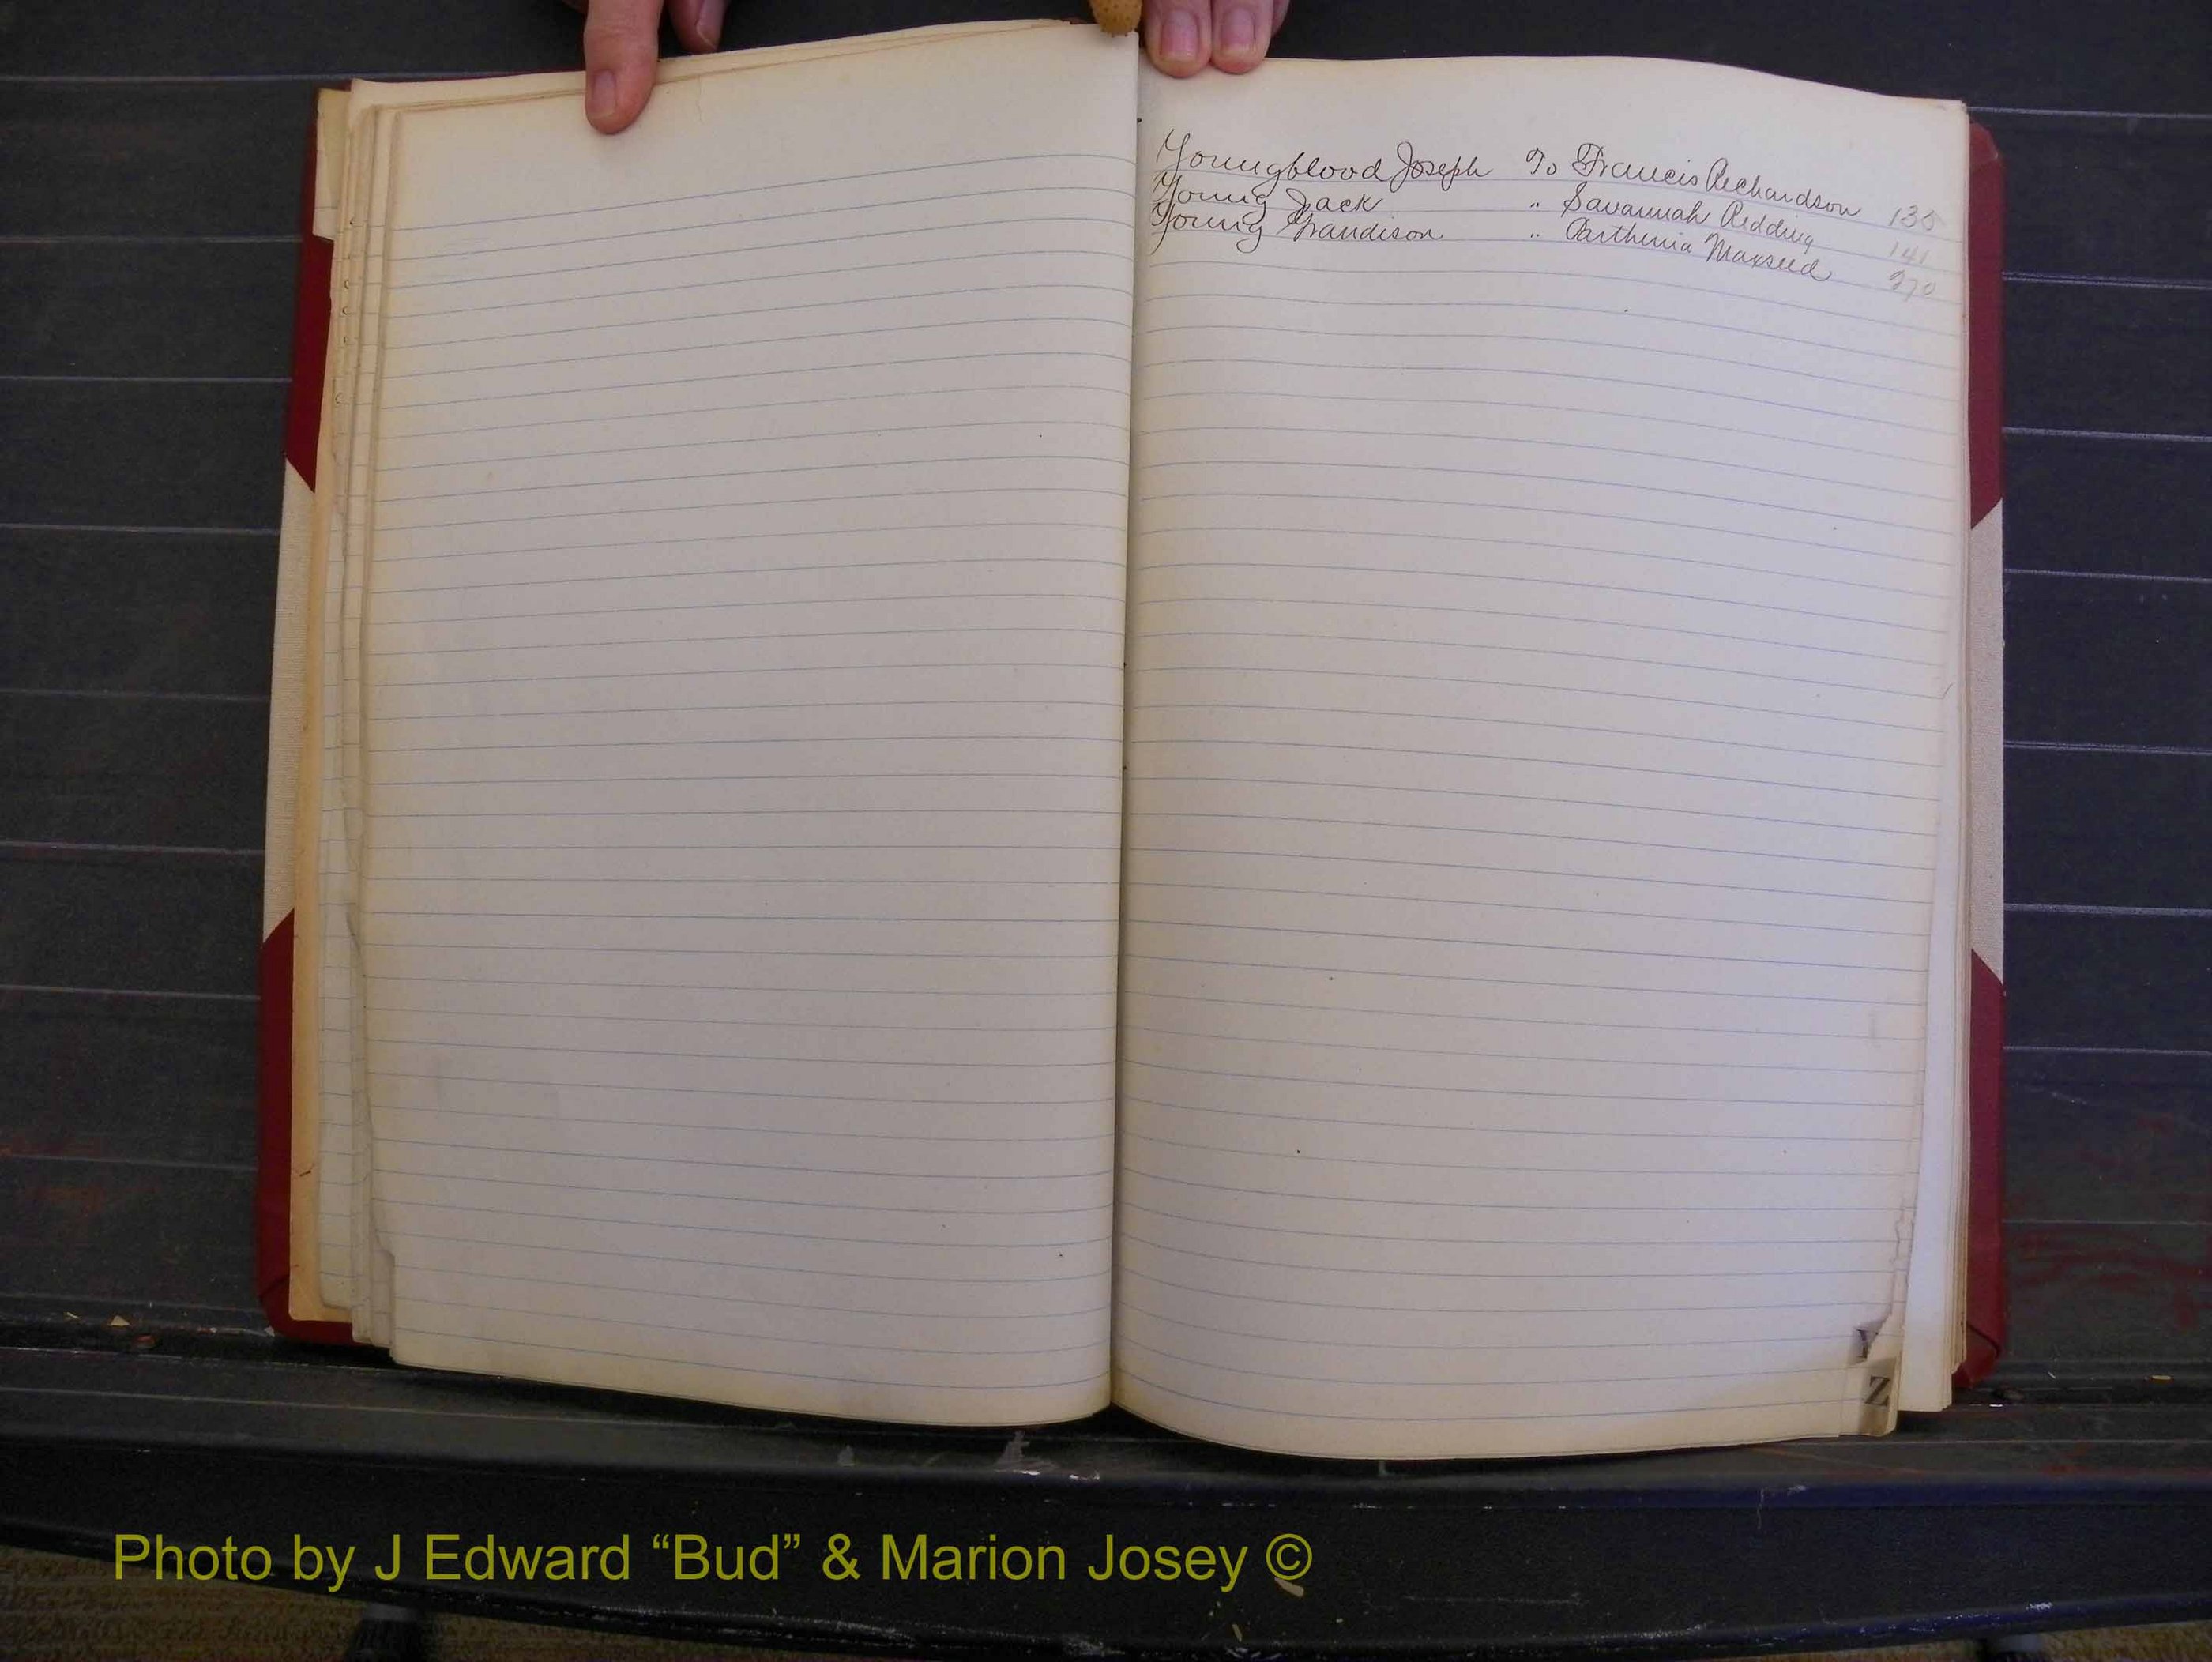 Youngblood Joseph To Francis Richardson 135
Young Jack " Savannah Redding 141
Young Grandison " Parthenia Maxseed 270
Y
Z
Photo by J Edward “Bud” & Marion Josey ©